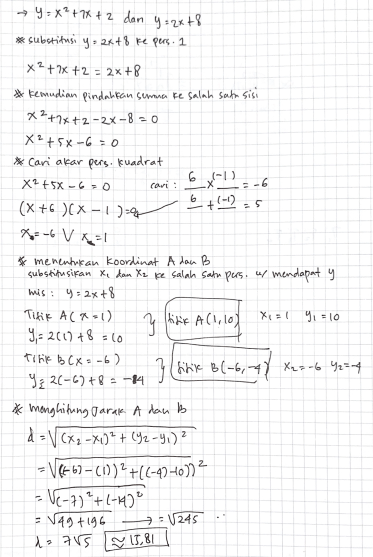 → y = x² + 7x + 2 dan y = 2x + 8
* substitusi y = 2x + 8 ke pers. 1
x² + 7x + 2 = 2x + 8
* kemudian pindahkan semua ke salah satu sisi
x² + 7x + 2 - 2x - 8 = 0
x² + 5x - 6 = 0
* cari akar pers. kuadrat
x² + 5x - 6 = 0 cari : 6 x (-1) = -6
(x + 6)(x - 1) = 0 6 + (-1) = 5
x = -6 ∨ x = 1
* menentukan koordinat A dan B
substitusikan x₁ dan x₂ ke salah satu pers. u/ mendapat y
mis : y = 2x + 8
Titik A (x = 1) } titik A (1, 10) x₁ = 1 y₁ = 10
y₁ = 2(1) + 8 = 10
Titik B (x = -6) } titik B (-6, -4) x₂ = -6 y₂ = -4
y₂ = 2(-6) + 8 = -4
* menghitung Jarak A dan B
d = √(x₂ - x₁)² + (y₂ - y₁)²
= √((-6) - (1))² + ((-4) - 10))²
= √(-7)² + (-14)²
= √49 + 196 → = √245
d = 7√5 ≈ 15,81